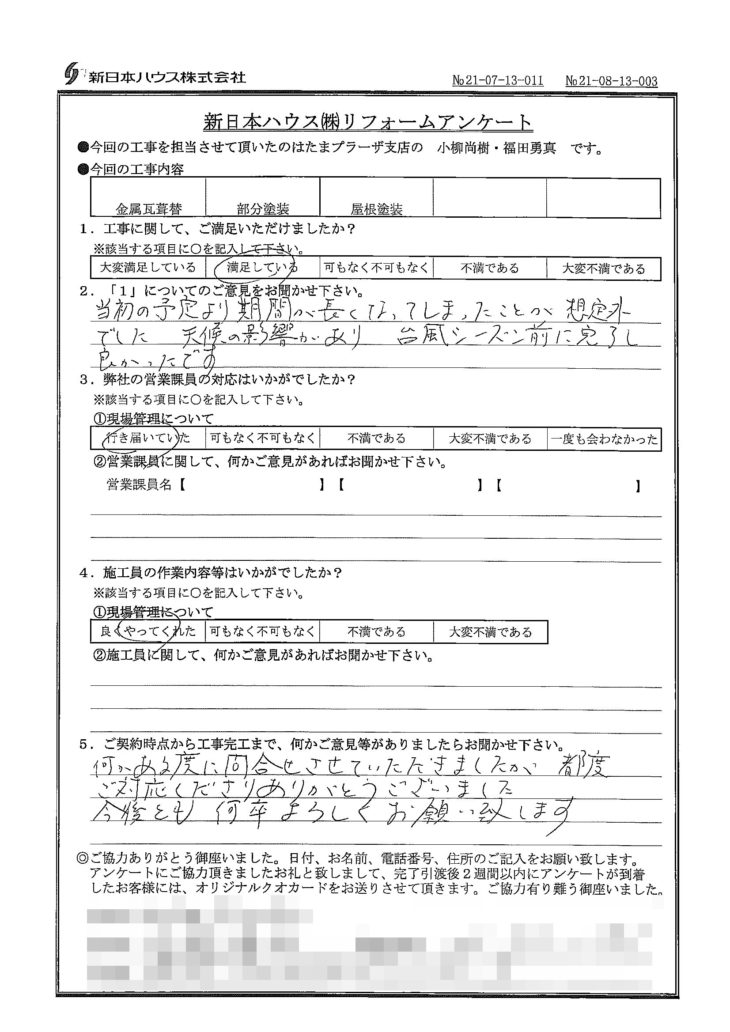 新日本ハウス株式会社
№21-07-13-011 №21-08-13-003
新日本ハウス㈱リフォームアンケート
●今回の工事を担当させて頂いたのはたまプラーザ支店の 小柳尚樹・福田勇真 です。
●今回の工事内容
金属瓦葺替 部分塗装 屋根塗装
1．工事に関して、ご満足いただけましたか？
※該当する項目に○を記入して下さい。
大変満足している 満足している 可もなく不可もなく 不満である 大変不満である
2．「1」についてのご意見をお聞かせ下さい。
当初の予定より期間が長くなってしまったことが想定外
でした 天候の影響があり 台風シーズン前に完了し
良かったです
3．弊社の営業課員の対応はいかがでしたか？
※該当する項目に○を記入して下さい。
①現場管理について
行き届いていた 可もなく不可もなく 不満である 大変不満である 一度も会わなかった
②営業課員に関して、何かご意見があればお聞かせ下さい。
営業課員名【 】【 】【 】
4．施工員の作業内容等はいかがでしたか？
※該当する項目に○を記入して下さい。
①現場管理について
良くやってくれた 可もなく不可もなく 不満である 大変不満である
②施工員に関して、何かご意見があればお聞かせ下さい。
5．ご契約時点から工事完工まで、何かご意見等がありましたらお聞かせ下さい。
何かある度に問合せさせていただきましたが 都度
ご対応くださりありがとうございました
今後とも 何卒よろしくお願い致します
◎ご協力ありがとう御座いました。日付、お名前、電話番号、住所のご記入をお願い致します。
アンケートにご協力頂きましたお礼と致しまして、完了引渡後2週間以内にアンケートが到着
したお客様には、オリジナルクオカードをお送りさせて頂きます。ご協力有り難う御座いました。